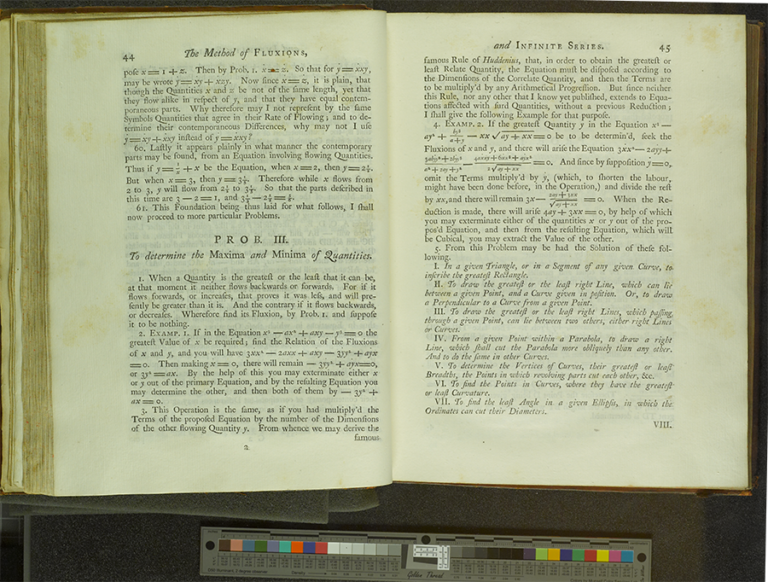 44 The Method of FLUXIONS,
pose x = 1 + z. Then by Prob. 1. ẋ = ż. So that for ẏ = ẋxy,
may be wrote ẏ = ẋy + ẋxy. Now since ẋ = ż, it is plain, that
though the Quantities x and z be not of the same length, yet that
they flow alike in respect of y, and that they have equal contem-
poraneous parts. Why therefore may I not represent by the same
Symbols Quantities that agree in their Rate of Flowing; and to de-
termine their contemporaneous Differences, why may not I use
ẏ = ẋy + ẋxy instead of ẏ = ẋxy?
60. Lastly it appears plainly in what manner the contemporary
parts may be found, from an Equation involving flowing Quantities.
Thus if y = + x be the Equation, when x = 2, then y = 2½.
But when x = 3, then y = 3⅓. Therefore while x flows from
2 to 3, y will flow from 2½ to 3⅓. So that the parts described in
this time are 3 — 2 = 1, and 3⅓ — 2½ = ⅚.
61. This Foundation being thus laid for what follows, I shall
now proceed to more particular Problems.
PROB. III.
To determine the Maxima and Minima of Quantities.
1. When a Quantity is the greatest or the least that it can be,
at that moment it neither flows backwards or forwards. For if it
flows forwards, or increases, that proves it was less, and will pre-
sently be greater than it is. And the contrary if it flows backwards,
or decreases. Wherefore find its Fluxion, by Prob. 1. and suppose
it to be nothing.
2. EXAMP. 1. If in the Equation x³ — ax² + axy — y³ = 0 the
greatest Value of x be required; find the Relation of the Fluxions
of x and y, and you will have 3ẋx² — 2aẋx + aẋy — 3ẏy² + aẏx
= 0. Then making ẋ = 0, there will remain — 3ẏy² + aẏx = 0,
or 3y² = ax. By the help of this you may exterminate either x
or y out of the primary Equation, and by the resulting Equation you
may determine the other, and then both of them by — 3y² +
ax = 0.
3. This Operation is the same, as if you had multiply'd the
Terms of the proposed Equation by the number of the Dimensions
of the other flowing Quantity y. From whence we may derive the
famous
2
and INFINITE SERIES. 45
famous Rule of Huddenius, that, in order to obtain the greatest or
least Relate Quantity, the Equation must be disposed according to
the Dimensions of the Correlate Quantity, and then the Terms are
to be multiply'd by any Arithmetical Progression. But since neither
this Rule, nor any other that I know yet published, extends to Equa-
tions affected with surd Quantities, without a previous Reduction;
I shall give the following Example for that purpose.
4. EXAMP. 2. If the greatest Quantity y in the Equation x³ —
ay² + by³/a+y — xx √ay + xx = 0 be to be determin'd, seek the
Fluxions of x and y, and there will arise the Equation 3ẋx² — 2aẏy +
3abẏy² + 2bẏy³/a² + 2ay + y² — 4aẋxy + 6ẋx³ + aẏx²/2√ay + xx = 0. And since by supposition ẏ = 0,
omit the Terms multiply'd by ẏ, (which, to shorten the labour,
might have been done before, in the Operation,) and divide the rest
by ẋx, and there will remain 3x — 2ay + 3xx/√ay + xx = 0. When the Re-
duction is made, there will arise 4ay + 3xx = 0, by help of which
you may exterminate either of the quantities x or y out of the pro-
pos'd Equation, and then from the resulting Equation, which will
be Cubical, you may extract the Value of the other.
5. From this Problem may be had the Solution of these fol-
lowing.
I. In a given Triangle, or in a Segment of any given Curve, to
inscribe the greatest Rectangle.
II. To draw the greatest or the least right Line, which can lie
between a given Point, and a Curve given in position. Or, to draw
a Perpendicular to a Curve from a given Point.
III. To draw the greatest or the least right Lines, which passing
through a given Point, can lie between two others, either right Lines
or Curves.
IV. From a given Point within a Parabola, to draw a right
Line, which shall cut the Parabola more obliquely than any other.
And to do the same in other Curves.
V. To determine the Vertices of Curves, their greatest or least
Breadths, the Points in which revolving parts cut each other, &c.
VI. To find the Points in Curves, where they have the greatest
or least Curvature.
VII. To find the least Angle in a given Ellipsis, in which the
Ordinates can cut their Diameters.
VIII.